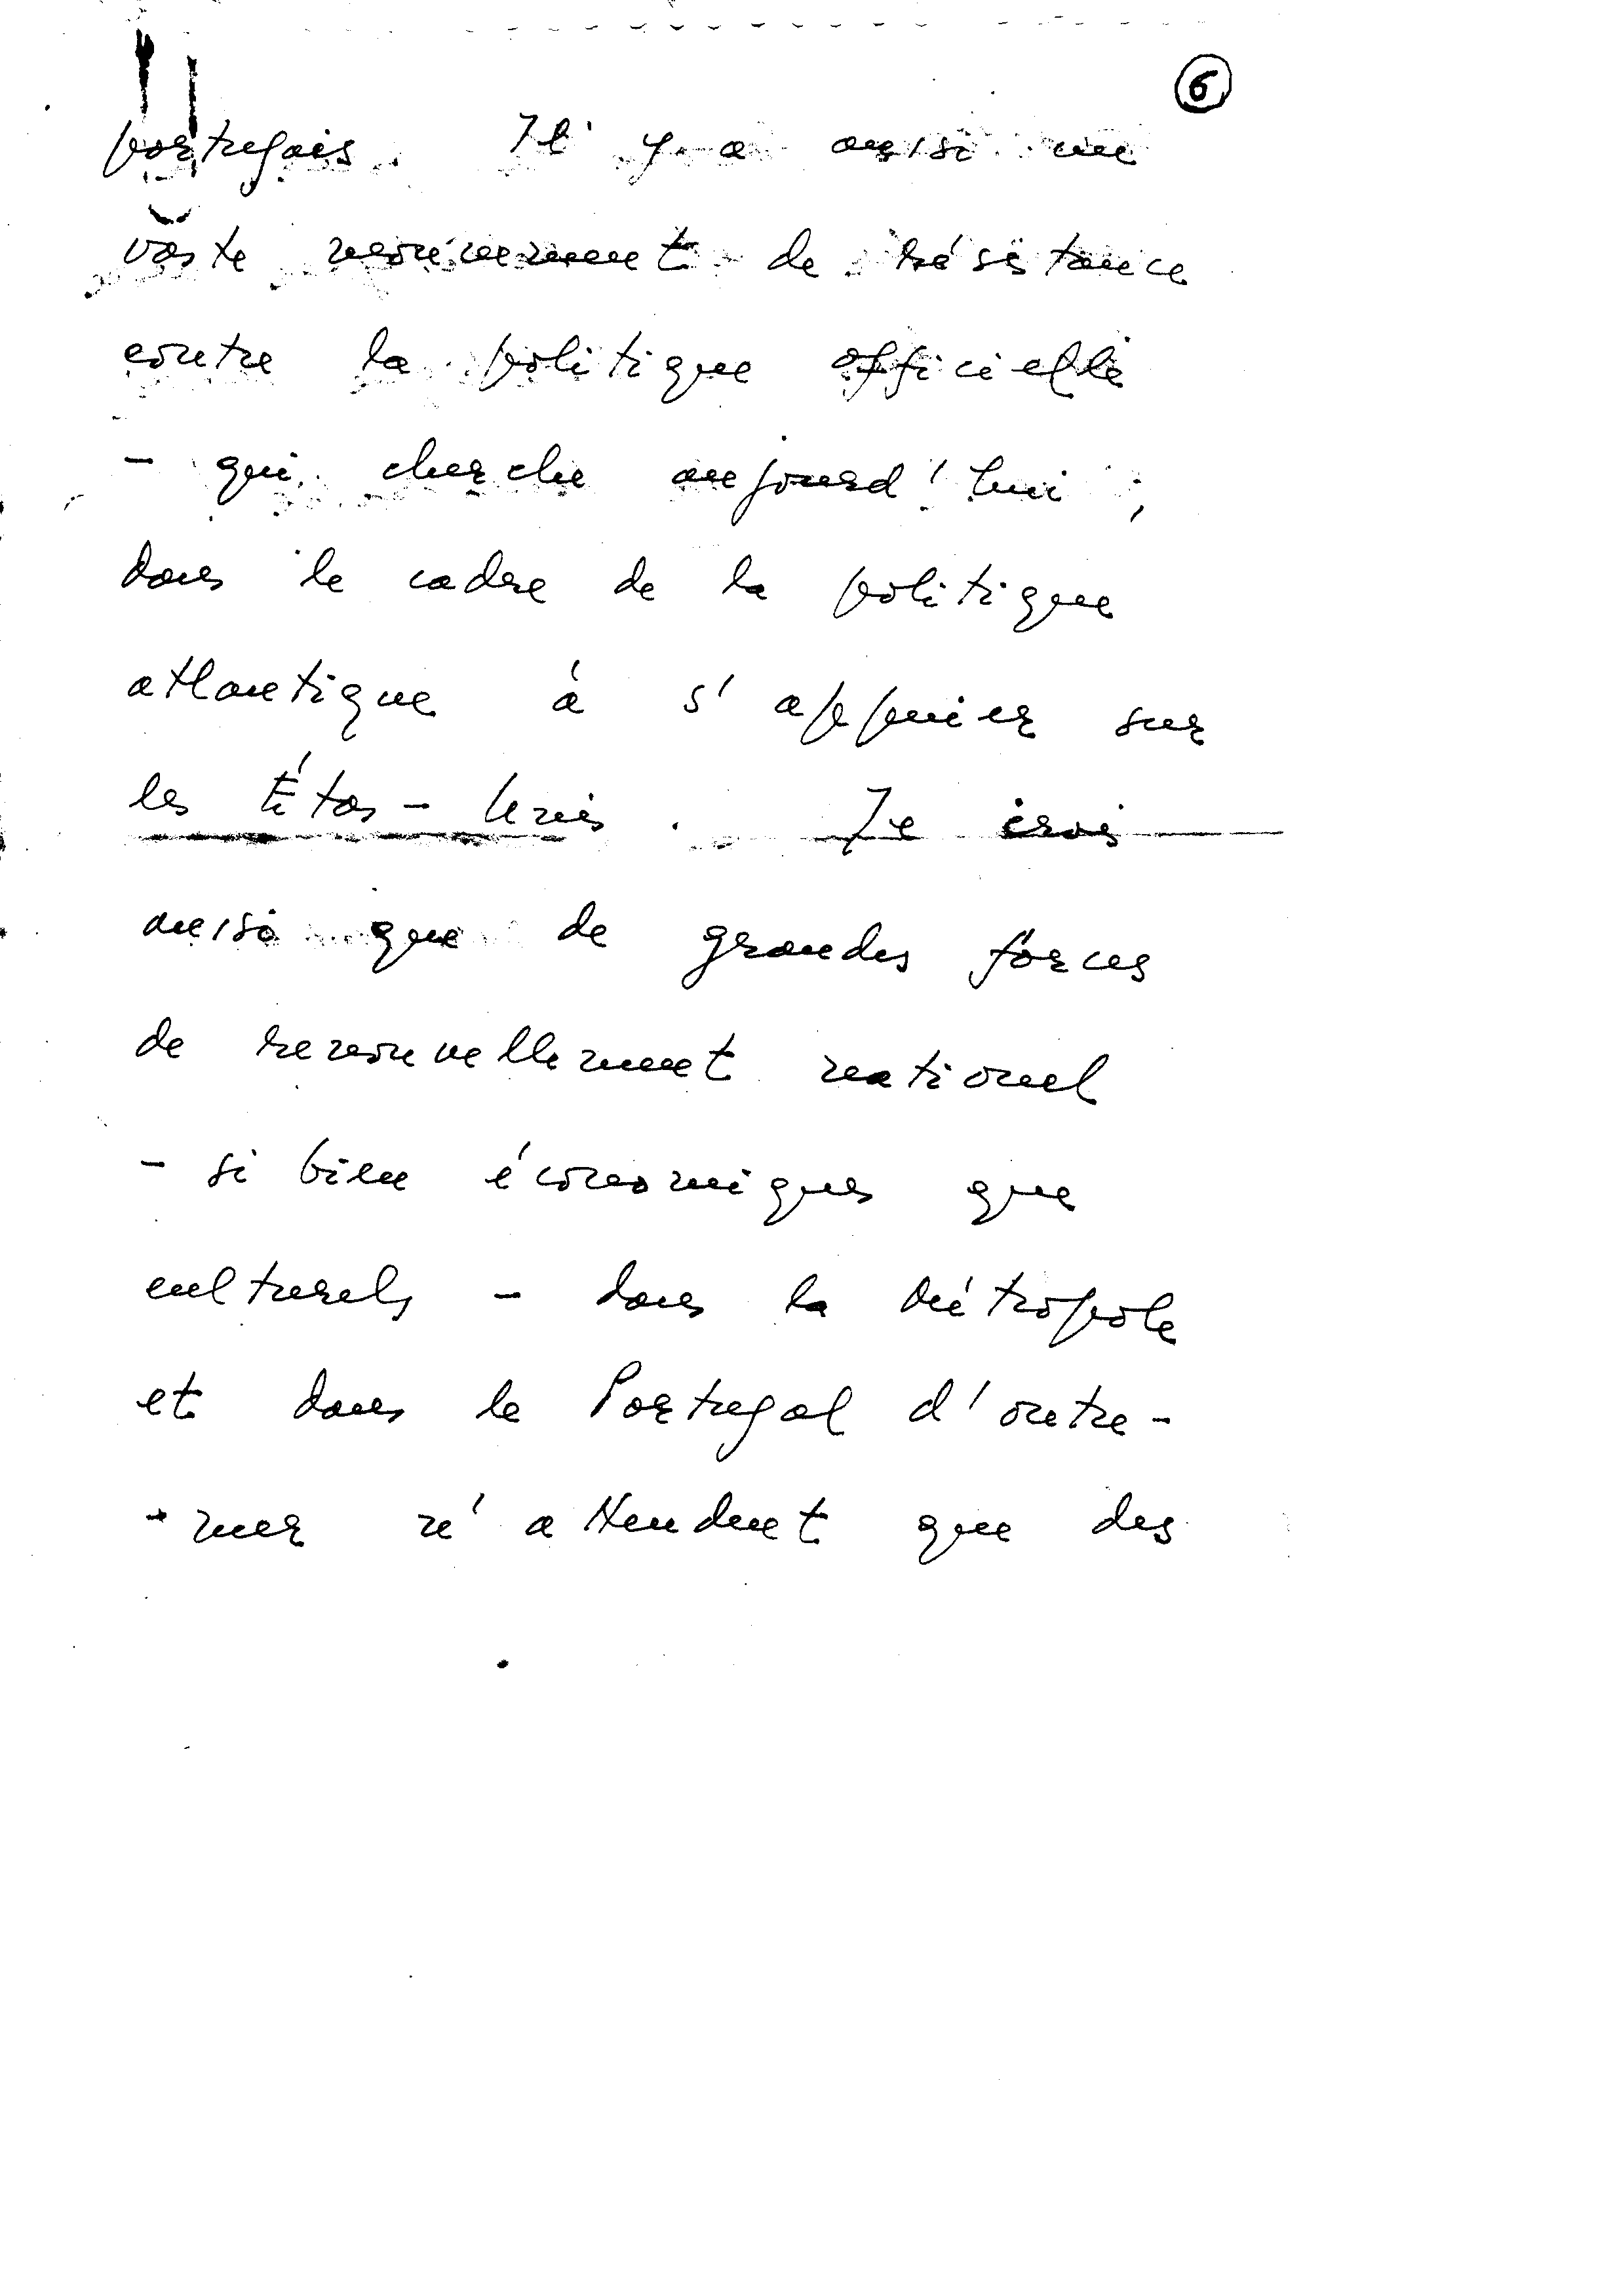 6
portugais. Il y a aussi un
vaste mouvement de résistance
contre la politique officielle
- qui cherche aujourd'hui,
dans le cadre de la politique
atlantique à s'appuier sur
les États-Unis. Je crois
aussi que de grandes forces
de renouvellement national
- si bien économiques que
culturels - dans la Métropole
et dans le Portugal d'outre-
-mer n'attendent que des